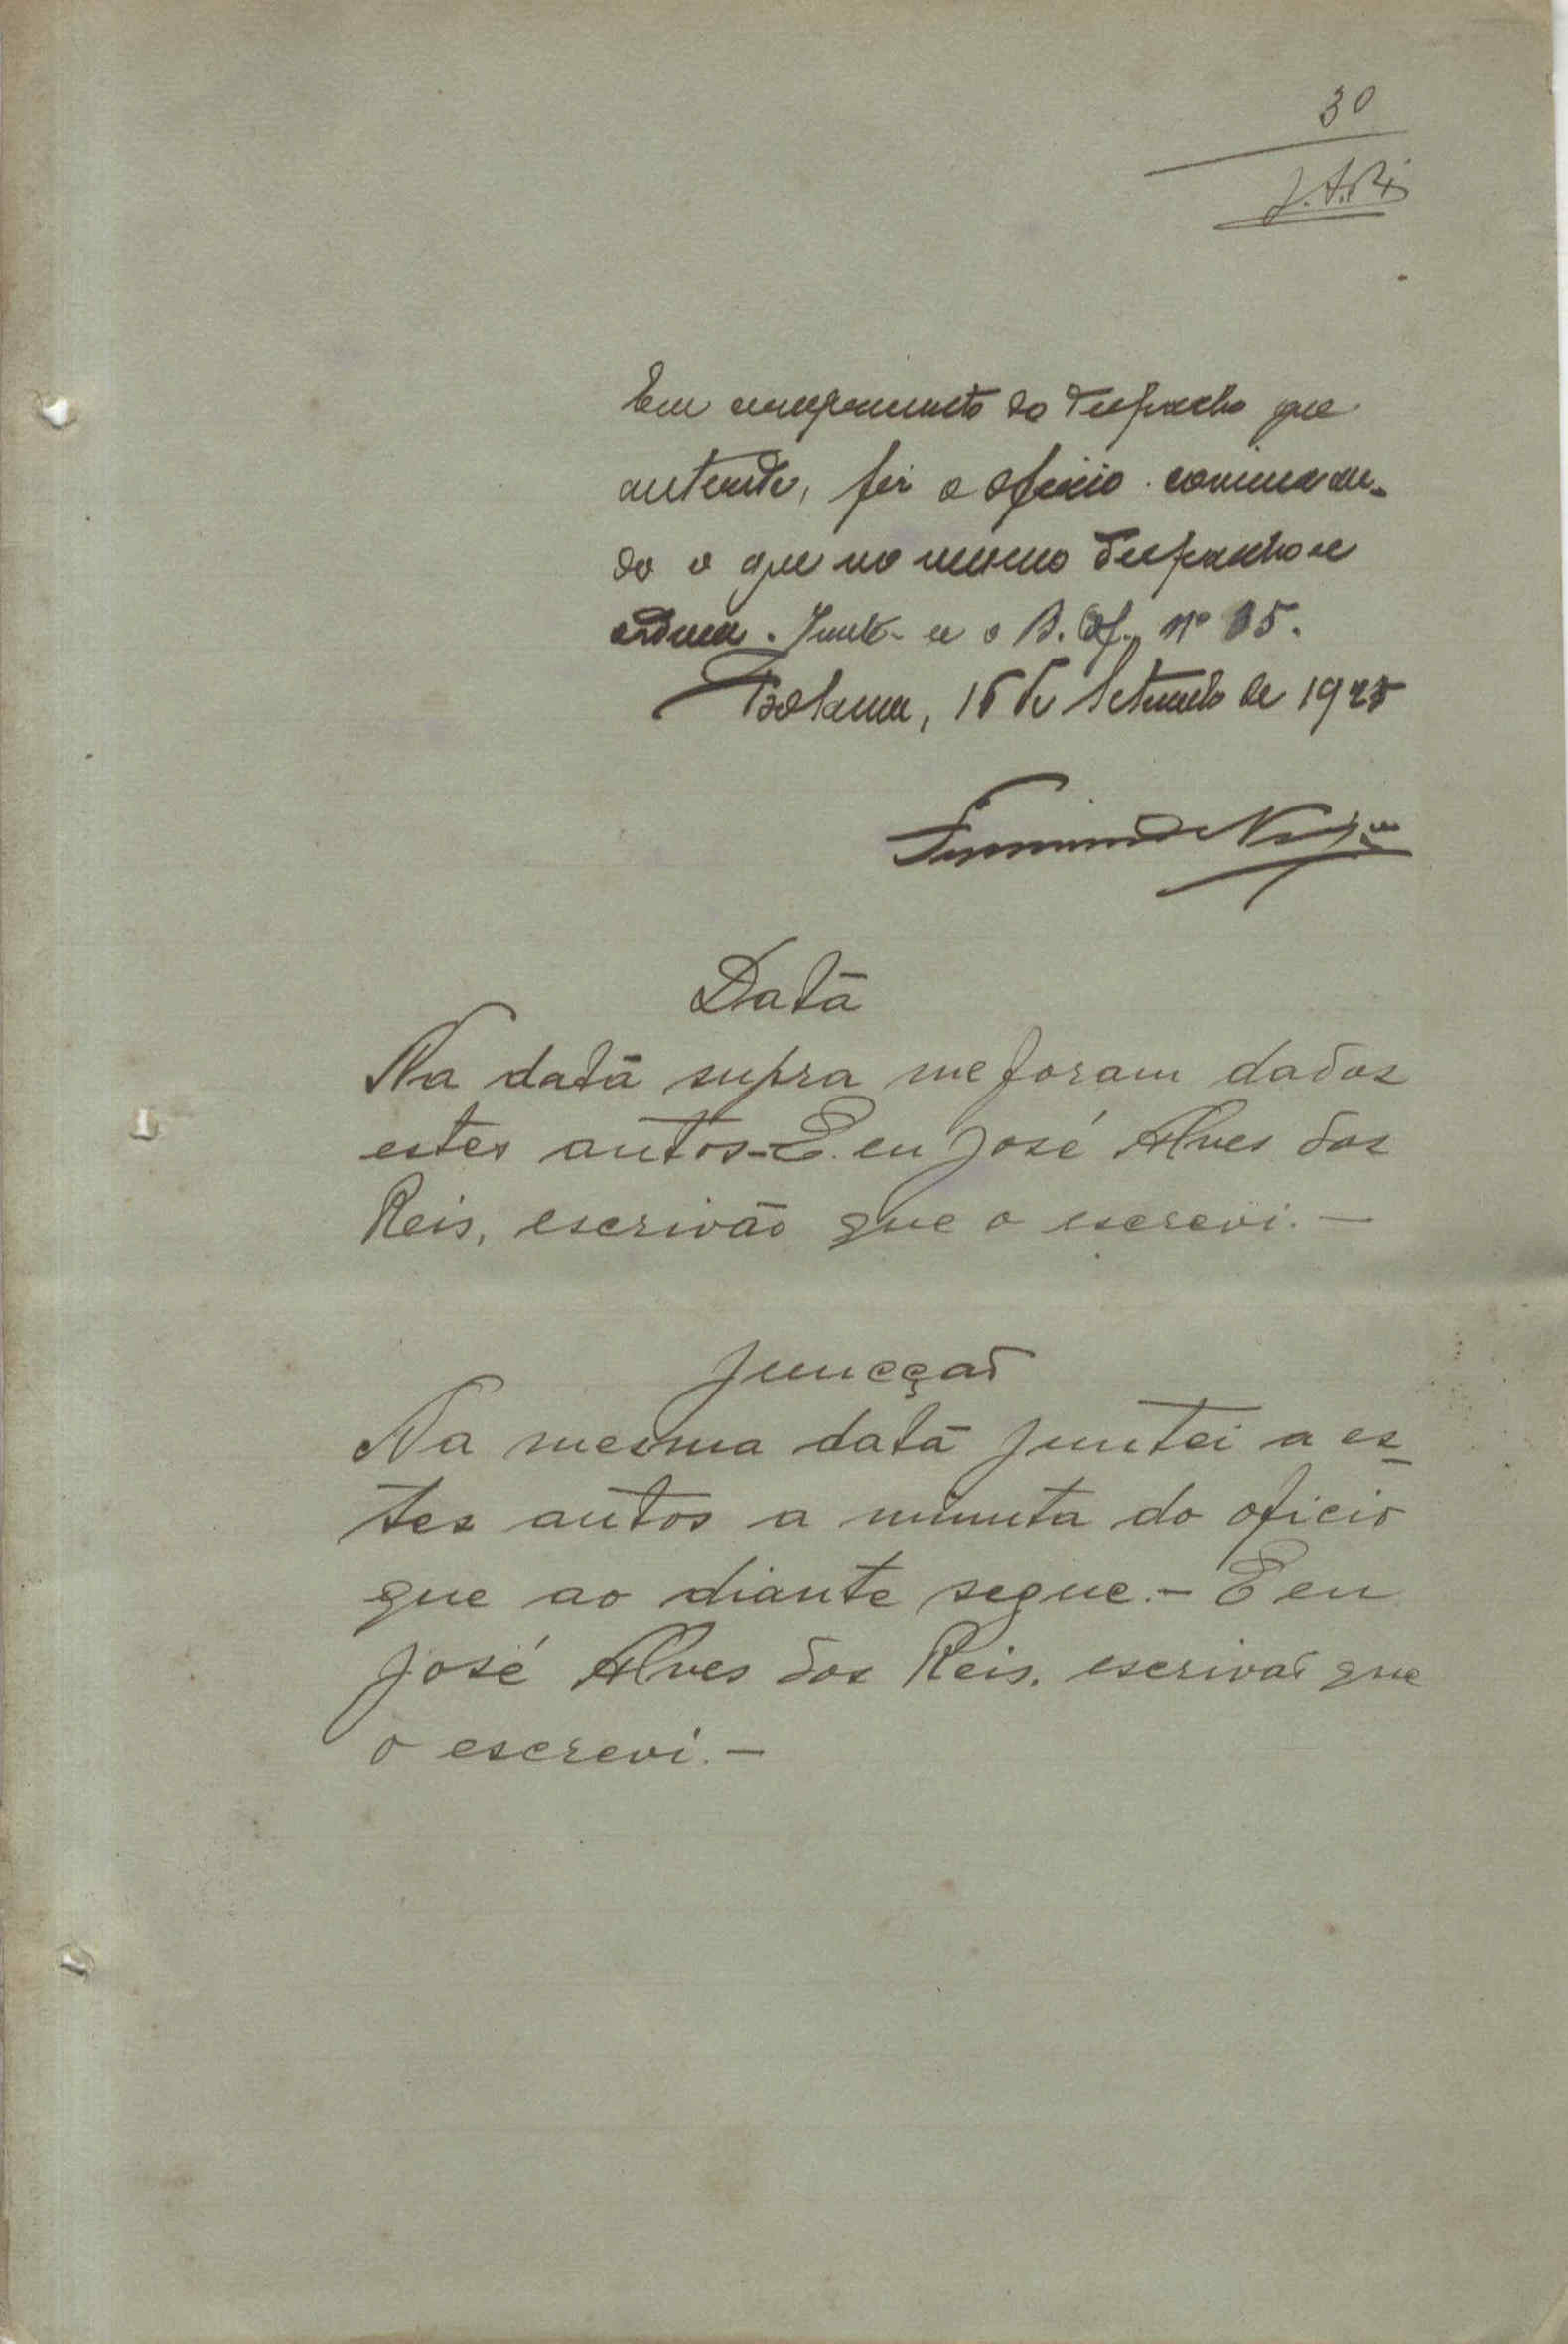 30
J. A. Reis
Em cumprimento do despacho que
antecede, fiz o oficio comunican-
do o que no mesmo despacho se
ordena. Junte-se o B. Of. nº 35.
Bolama, 16 de Setembro de 1925
Data
Na data supra me foram dados
estes autos.-E eu José Alves dos
Reis, escrivão que o escrevi.-
Juncção
Na mesma data juntei a es-
tes autos a minuta do oficio
que ao diante segue.- E eu
José Alves dos Reis, escrivão que
o escrevi.-